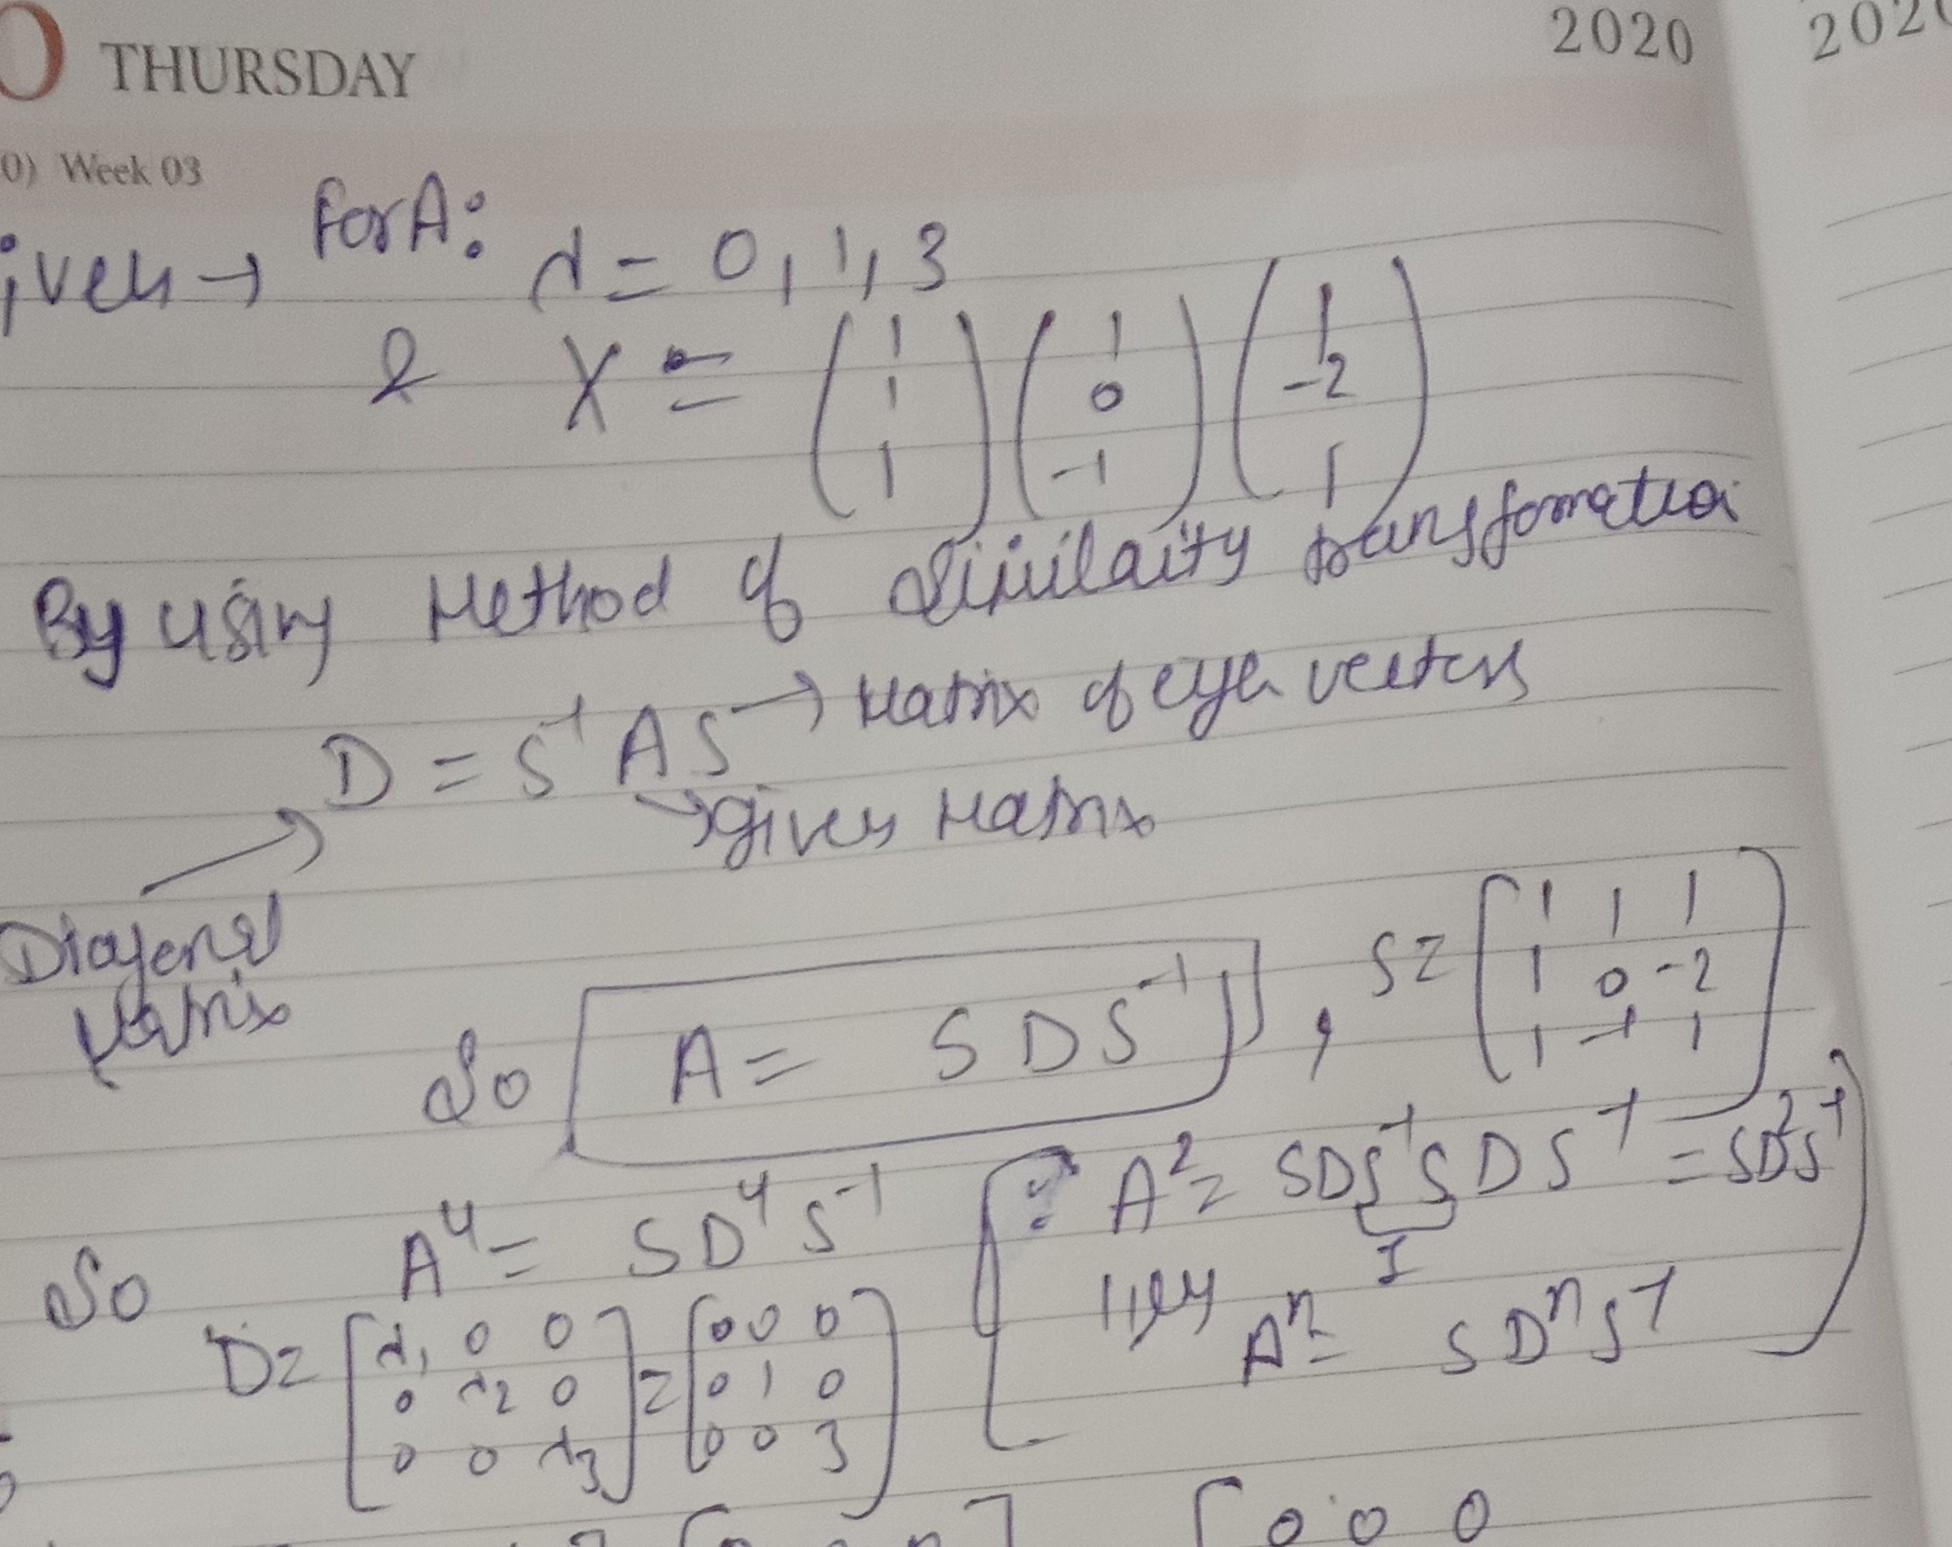 THURSDAY 2020 202
0) Week 03
iven → for A: λ = 0, 1, 3
& X = (1 1 1) (1 0 -1) (1 -2 1)
By using Method of Similaity transformation
D = S⁻¹ A S → Matrix of eigen vectors
→ given Matrix
Diagonal
Matrix
So A = S D S⁻¹ , S = [1 1 1
1 0 -2
1 -1 1]
So A⁴ = S D⁴ S⁻¹ [∵ A² = S D S⁻¹ S D S⁻¹ = S D² S⁻¹
I
llly Aⁿ = S Dⁿ S⁻¹]
D = [λ₁ 0 0 = [0 0 0
0 λ₂ 0 0 1 0
0 0 λ₃] 0 0 3]
[0 0 0